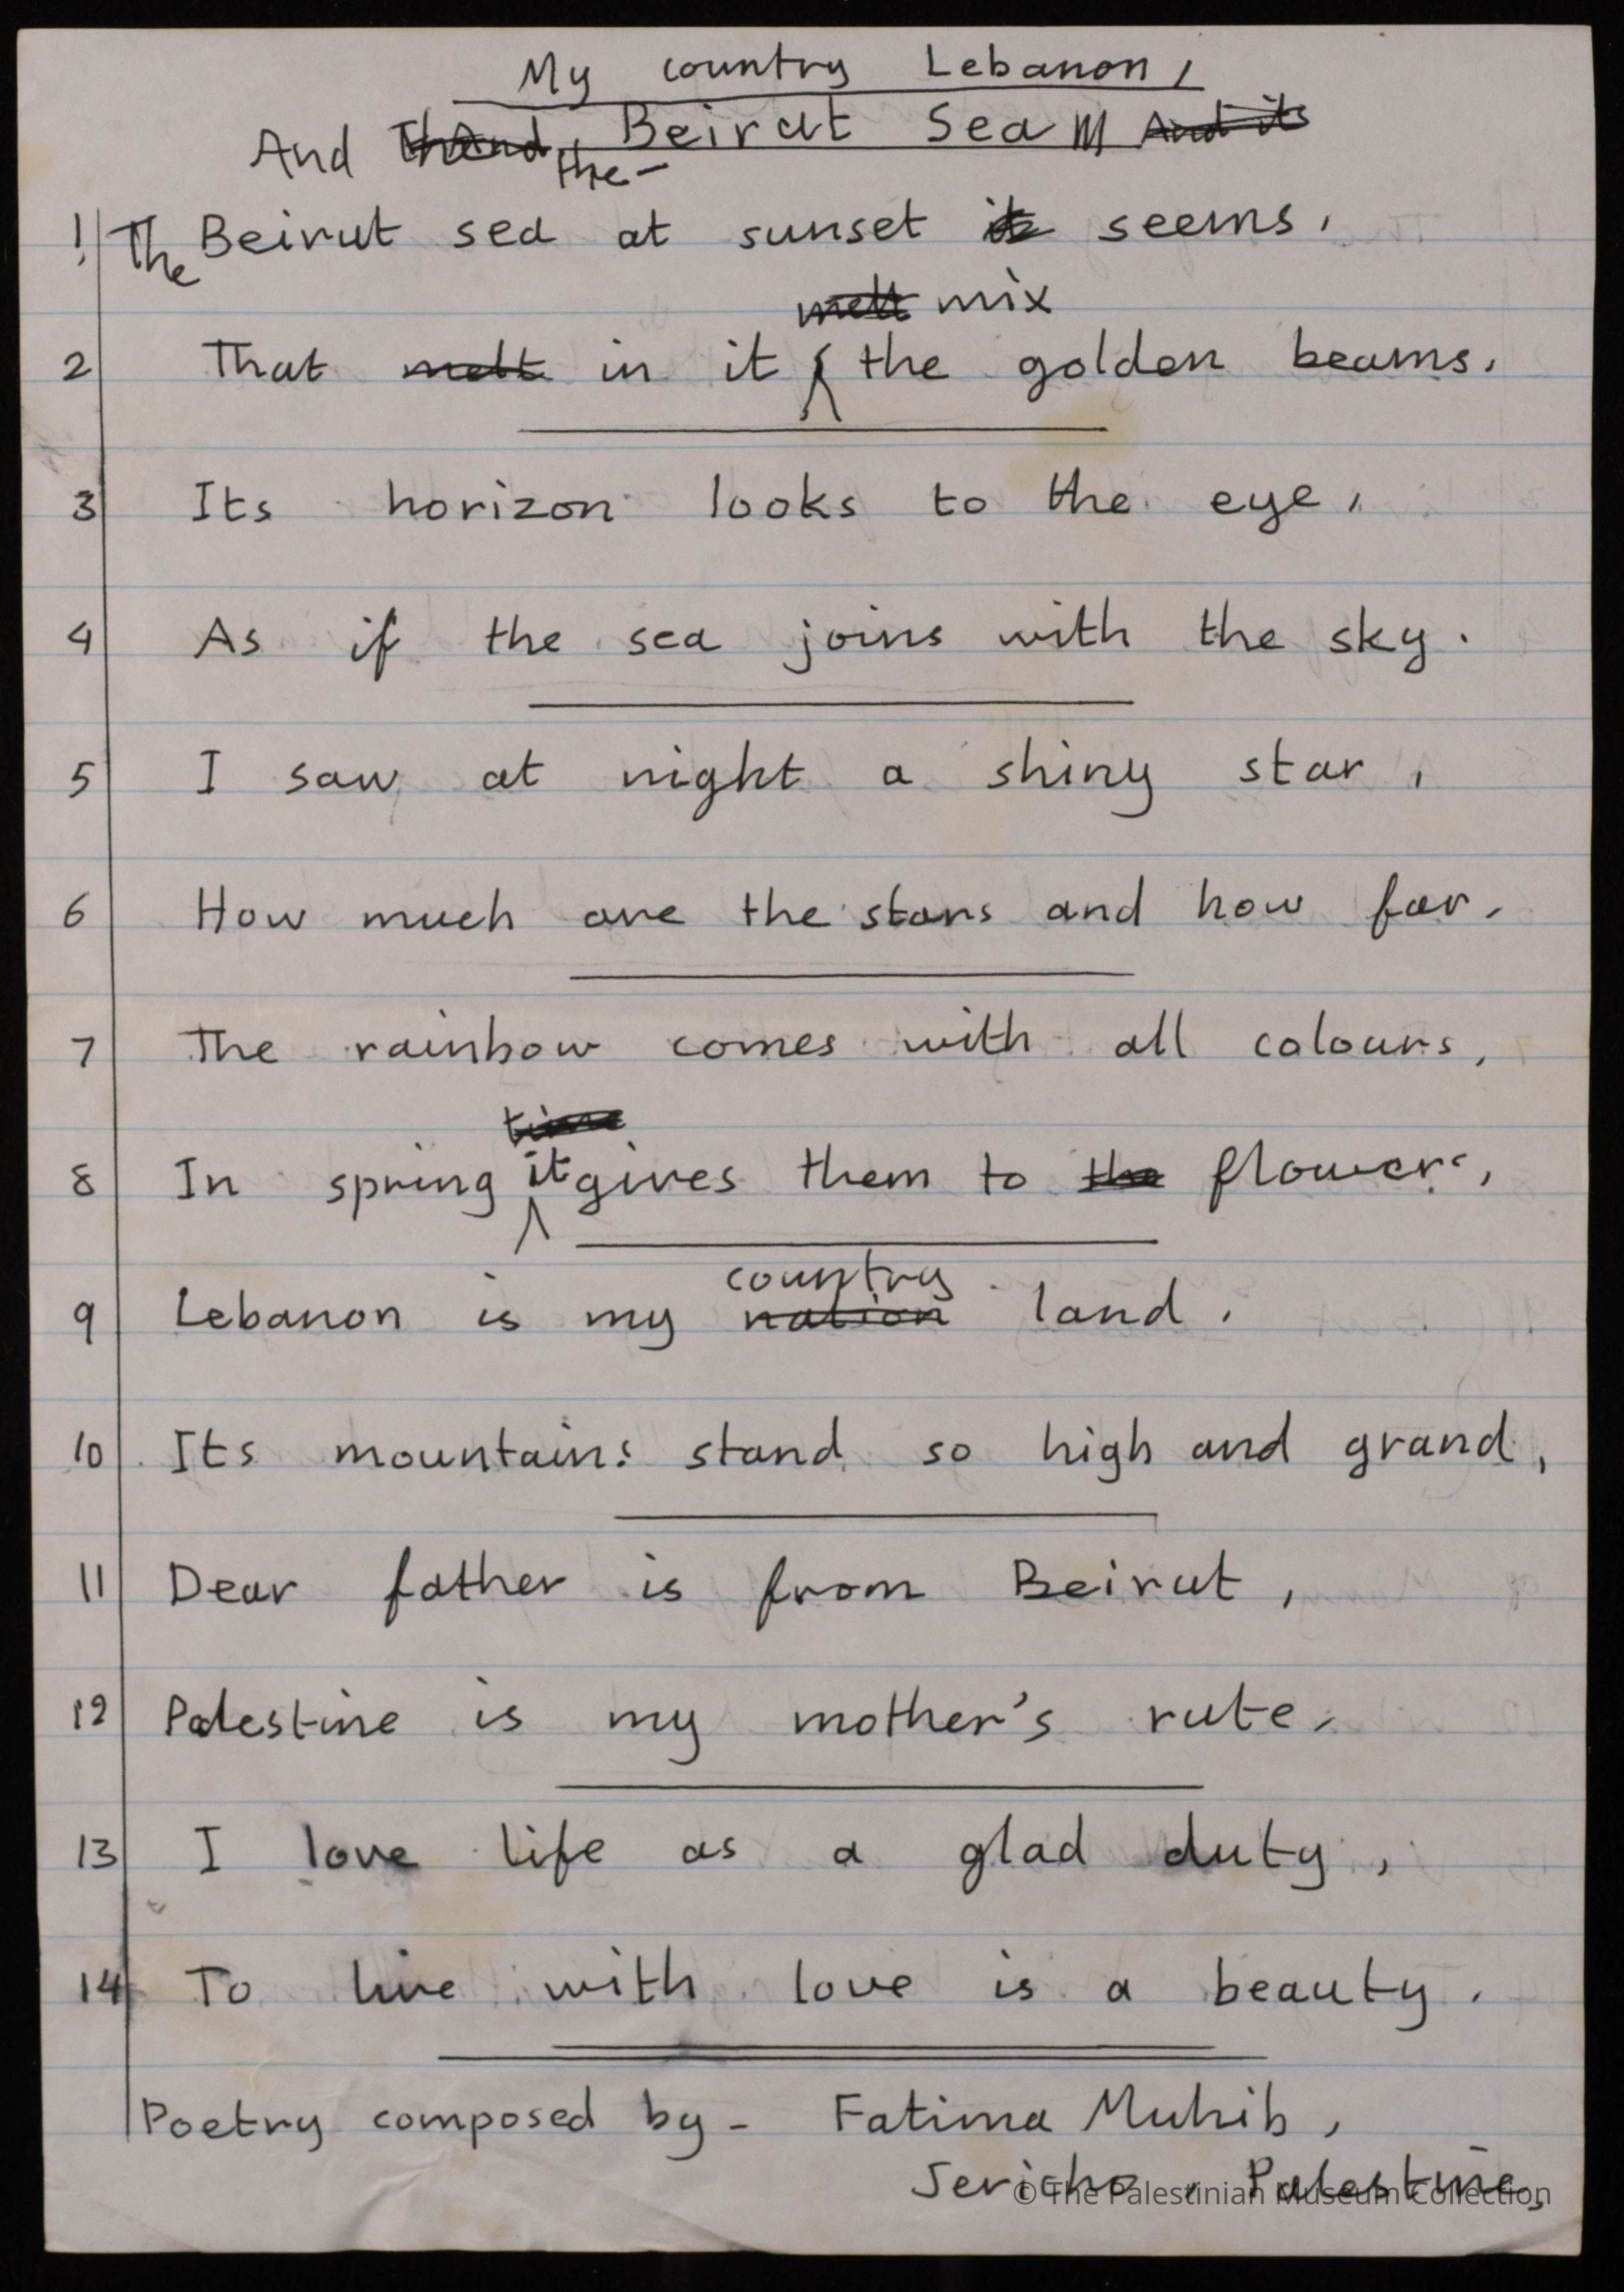 My country Lebanon,
And the Beirut Sea And its
1 The Beirut sea at sunset it seems,
melt mix
2 That melt in it the golden beams.
3 Its horizon looks to the eye,
4 As if the sea joins with the sky.
5 I saw at night a shiny star,
6 How much are the stars and how far.
7 The rainbow comes with all colours,
time
8 In spring it gives them to the flowers,
country
9 Lebanon is my nation land.
10 Its mountains stand so high and grand,
11 Dear father is from Beirut,
12 Palestine is my mother's rute.
13 I love life as a glad duty,
14 To live with love is a beauty.
Poetry composed by - Fatima Muhib,
Jericho, Palestine,
© The Palestinian Museum Collection